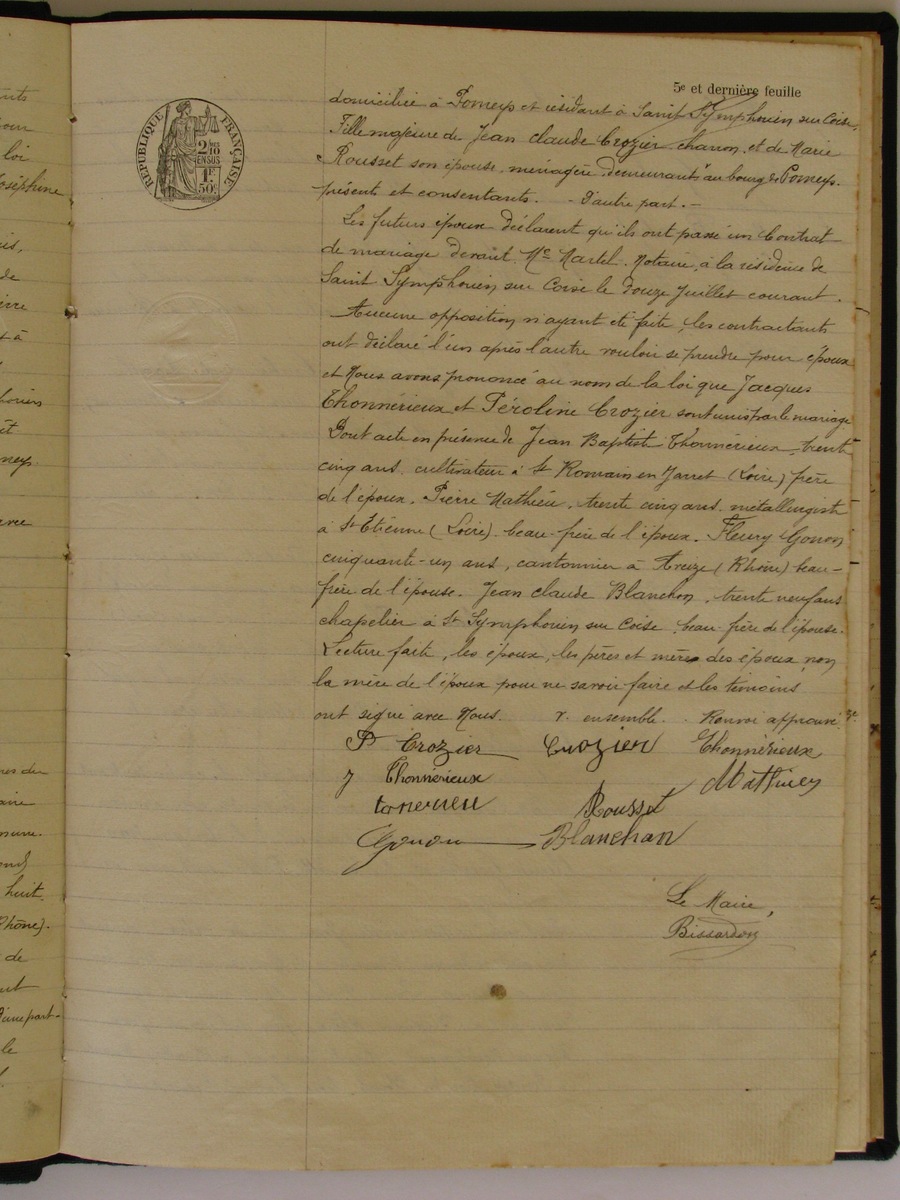 5e et dernière feuille
RÉPUBLIQUE FRANÇAISE
2 10MES
EN SUS
1F
50c
domiciliée à Pomeys et résidant à Saint Symphorien sur Coise,
Fille majeure de Jean claude Crozier charron, et de Marie
Rousset son épouse, ménagère, demeurants au bourg de Pomeys.
présents et consentants. - D'autre part. -
Les futurs époux déclarent qu'ils ont passé un Contrat
de mariage devant Me Martel, Notaire, à la résidence de
Saint Symphorien sur Coise le douze Juillet courant.
Aucune opposition n'ayant été faite, les contractants
ont déclaré l'un après l'autre vouloir se prendre pour époux
et Nous avons prononcé au nom de la loi que Jacques
Thonnérieux et Péroline Crozier sont unis par le mariage
Dont acte en présence de Jean Baptiste Thonnérieux, trente
cinq ans, cultivateur à St Romain en Jarret (Loire) frère
de l'époux, Pierre Mathieu, trente cinq ans, métallurgiste
à St Etienne (Loire) beau-frère de l'époux. Fleury Gonon
cinquante-un ans, cantonnier à (Rhône) beau-
frère de l'épouse. Jean claude Blanchon, trente neuf ans
chapelier à St Symphorien sur Coise, beau-frère de l'épouse.
Lecture faite, les époux, les pères et mères des époux, non
la mère de l'époux pour ne savoir faire et les témoins
ont signé avec Nous. r. ensemble. Renvoi approuvé
P Crozier Crozier Thonnérieux
J Thonnérieux Mathieu
Rousset
Gonon Blanchan
Le Maire,
Bissardon